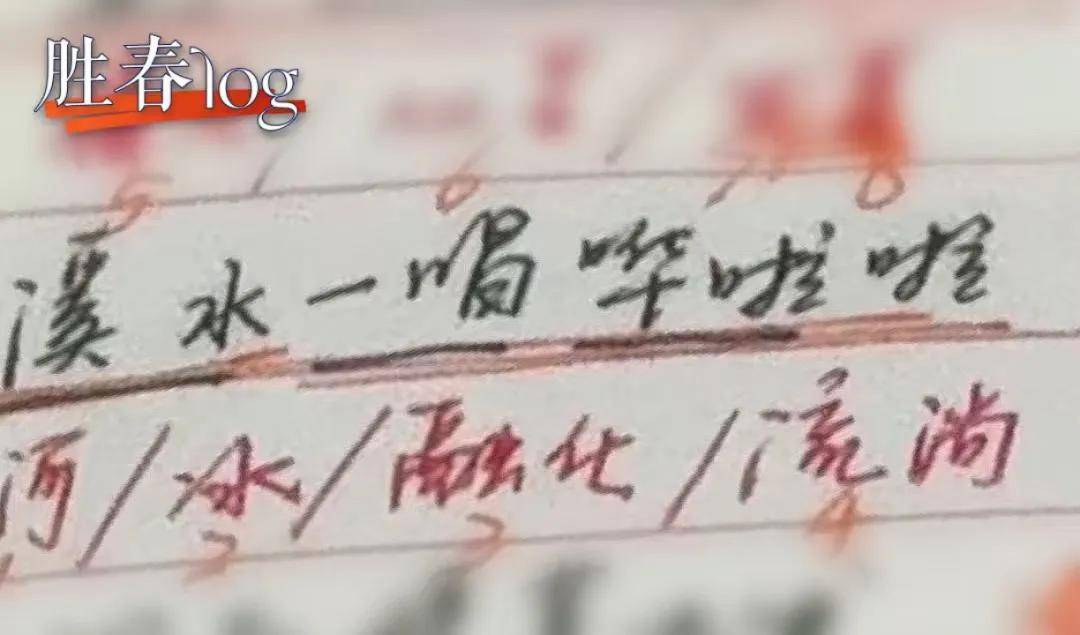 胜春log
5 6 8
溪水一唱哗啦啦
河/冰/融化/流淌
2 3 4